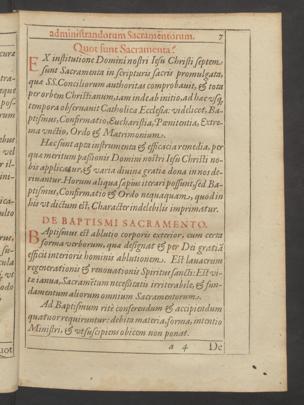 administrandorum Sacramentorum. 7
Quot sunt Sacramenta?
EX institutione Domini nostri Iesu Christi septem
sunt Sacramenta in scripturis sacris promulgata,
quæ SS. Conciliorum authoritas comprobauit, & tota
per orbem Christianum, iam inde ab initio, ad hæc vsq́
tempora obseruauit Catholica Ecclesia: videlicet, Ba-
ptismus, Confirmatio, Eucharistia, Pœnitentia, Extre-
ma vnctio, Ordo & Matrimonium.
Hæc sunt apta instrumenta & efficacia remedia, per
quæ meritum passionis Domini nostri Iesu Christi no-
bis applicatur, & varia diuinæ gratiæ dona in nos de-
riuantur. Horum aliqua sæpius iterari possunt, sed Ba-
ptismus, Confirmatio & Ordo nequaquam, quod in
his vt dictum est, Character indelebilis imprimatur.
DE BAPTISMI SACRAMENTO.
BAptismus est ablutio corporis exterior, cum certa
forma verborum, quæ designat & per Dei gratiā
efficit interioris hominis ablutionem. Est lauacrum
regenerationis & renouationis Spiritus sancti: Est vi-
tæ ianua, Sacramētum necessitatis irriterabile, & fun-
damentum aliorum omnium Sacramentorum.
Ad Baptismum ritè conferendum & accipiendum
quatuor requiruntur: debita materia, forma, intentio
Ministri, & vt suscipiens obicem non ponat.
a 4 De